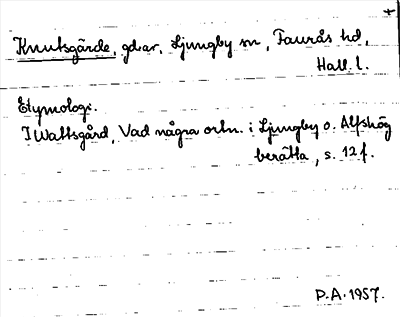 Knutsgärde, gdar, Ljungby sn, Faurås hd,
Hall. l.
Etymologi.
I Wattsgård, Vad några ortn. i Ljungby o. Alfshög
berätta, s. 12 f.
P.A. 1957.